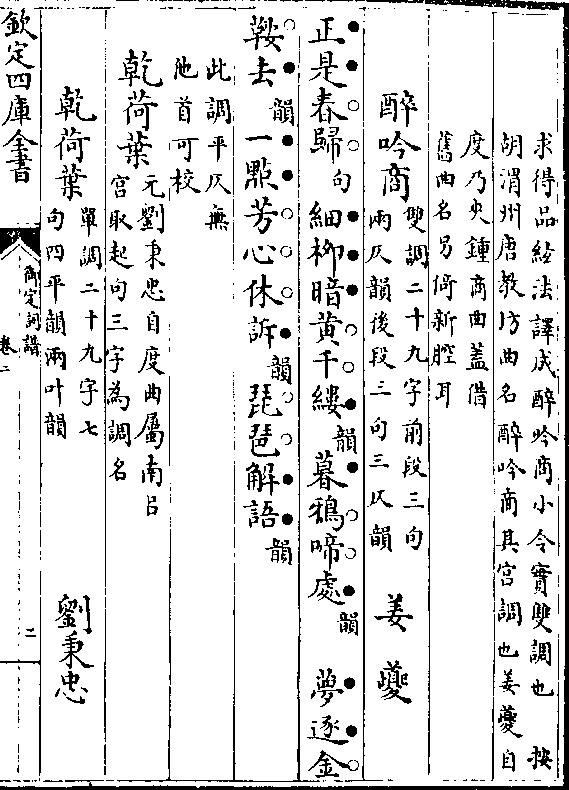 求得品絃法譯成醉吟商小令實雙調也　按
胡渭州唐教坊曲名醉吟商其宮調也姜夔自
度乃夾鍾商曲蓋借
舊曲名另倚新腔耳
醉吟商　雙調二十九字前段三句
兩仄韻後段三句三仄韻　姜夔
正是春歸句細柳暗黃千縷韻暮鴉啼處韻　夢逐金
鞍去韻一點芳心休訴韻琵琶解語韻
此調平仄無
他首可校
乾荷葉　元劉秉忠自度曲屬南呂
宮取起句三字為調名
乾荷葉　單調二十九字七
句四平韻兩叶韻　劉秉忠
欽定四庫全書
御定詞譜
卷二
二